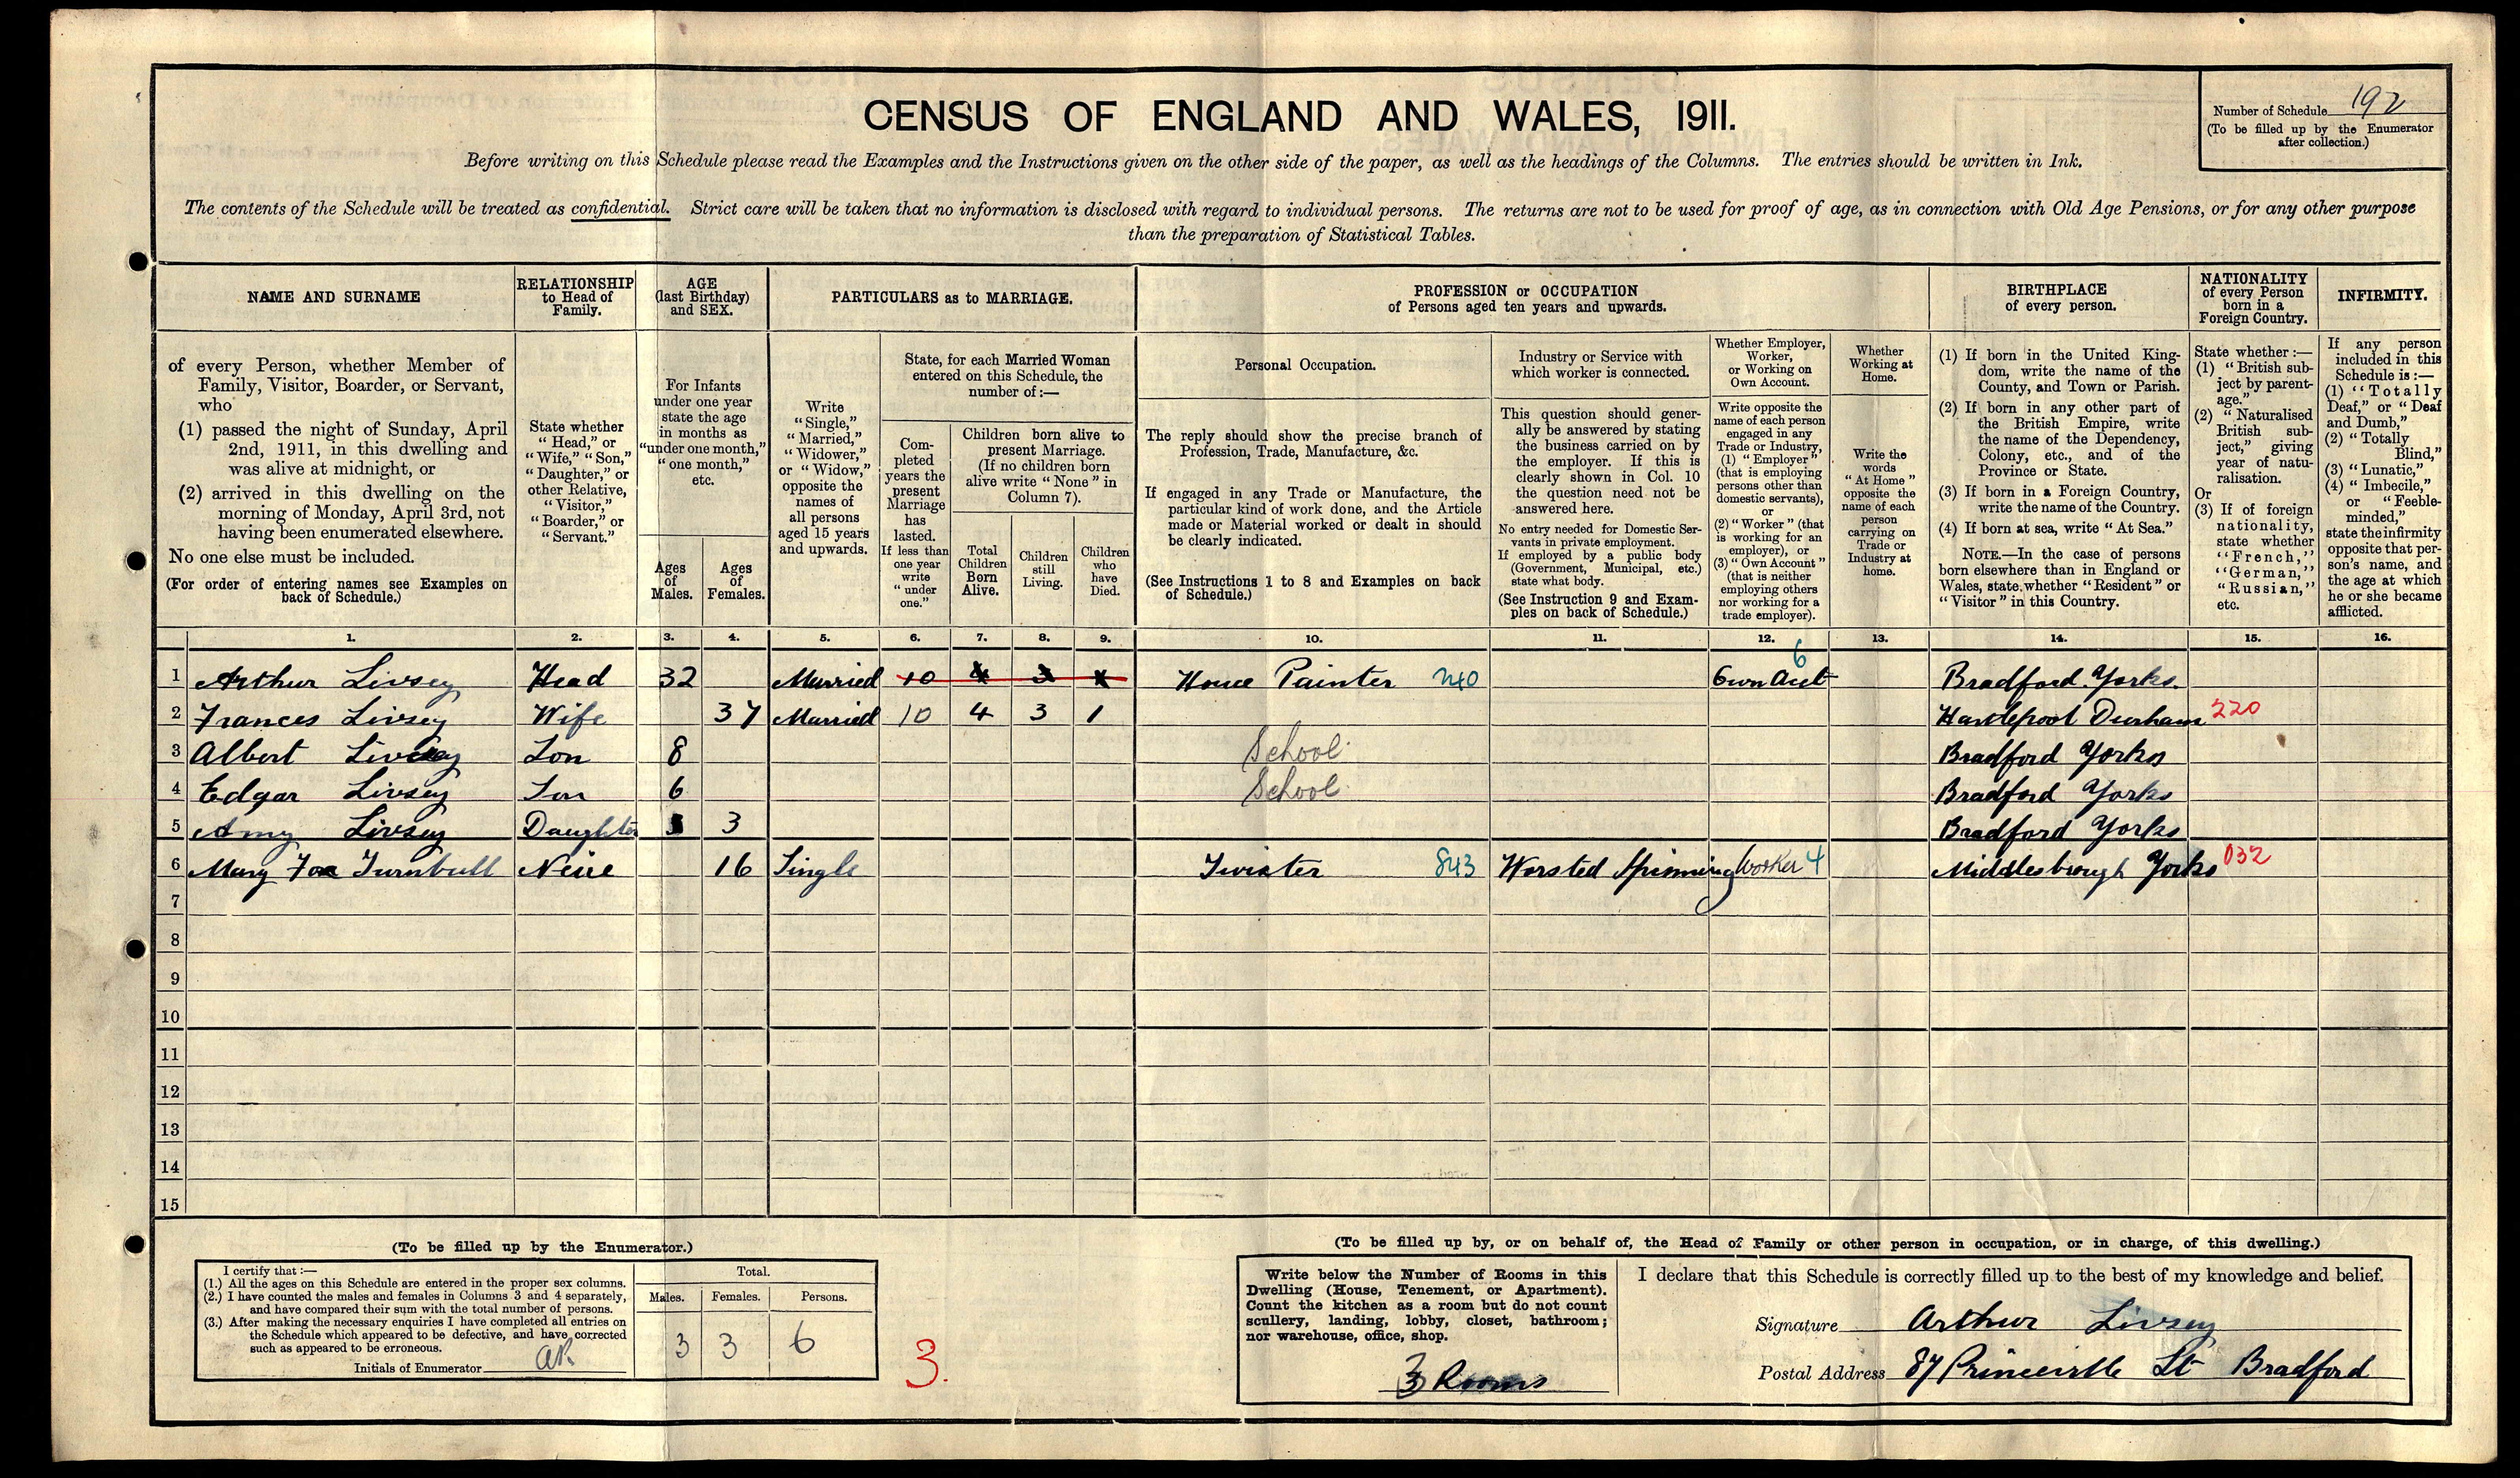 CENSUS OF ENGLAND AND WALES, 1911.
Number of Schedule 192
(To be filled up by the Enumerator
after collection.)
Before writing on this Schedule please read the Examples and the Instructions given on the other side of the paper, as well as the headings of the Columns. The entries should be written in Ink.
The contents of the Schedule will be treated as confidential. Strict care will be taken that no information is disclosed with regard to individual persons. The returns are not to be used for proof of age, as in connection with Old Age Pensions, or for any other purpose
than the preparation of Statistical Tables.
NAME AND SURNAME
RELATIONSHIP
to Head of
Family.
AGE
(last Birthday)
and SEX.
PARTICULARS as to MARRIAGE.
PROFESSION or OCCUPATION
of Persons aged ten years and upwards.
BIRTHPLACE
of every person.
NATIONALITY
of every Person
born in a
Foreign Country.
INFIRMITY.
of every Person, whether Member of
Family, Visitor, Boarder, or Servant,
who
(1) passed the night of Sunday, April
2nd, 1911, in this dwelling and
was alive at midnight, or
(2) arrived in this dwelling on the
morning of Monday, April 3rd, not
having been enumerated elsewhere.
No one else must be included.
(For order of entering names see Examples on
back of Schedule.)
State whether
"Head," or
"Wife," "Son,"
"Daughter," or
other Relative,
"Visitor,"
"Boarder," or
"Servant."
For Infants
under one year
state the age
in months as
"under one month,"
"one month,"
etc.
Ages
of
Males.
Ages
of
Females.
Write
"Single,"
"Married,"
"Widower,"
or "Widow,"
opposite the
names of
all persons
aged 15 years
and upwards.
State, for each Married Woman
entered on this Schedule, the
number of:—
Com-
pleted
years the
present
Marriage
has
lasted.
If less than
one year
write
"under
one."
Children born alive to
present Marriage.
(If no children born
alive write "None" in
Column 7).
Total
Children
Born
Alive.
Children
still
Living.
Children
who
have
Died.
Personal Occupation.
The reply should show the precise branch of
Profession, Trade, Manufacture, &c.
If engaged in any Trade or Manufacture, the
particular kind of work done, and the Article
made or Material worked or dealt in should
be clearly indicated.
(See Instructions 1 to 8 and Examples on back
of Schedule.)
Industry or Service with
which worker is connected.
This question should gener-
ally be answered by stating
the business carried on by
the employer. If this is
clearly shown in Col. 10
the question need not be
answered here.
No entry needed for Domestic Ser-
vants in private employment.
If employed by a public body
(Government, Municipal, etc.)
state what body.
(See Instruction 9 and Exam-
ples on back of Schedule.)
Whether Employer,
Worker,
or Working on
Own Account.
Write opposite the
name of each person
engaged in any
Trade or Industry,
(1) "Employer"
(that is employing
persons other than
domestic servants),
or
(2) "Worker" (that
is working for an
employer), or
(3) "Own Account"
(that is neither
employing others
nor working for a
trade employer).
Whether
Working at
Home.
Write the
words
"At Home"
opposite the
name of each
person
carrying on
Trade or
Industry at
home.
(1) If born in the United King-
dom, write the name of the
County, and Town or Parish.
(2) If born in any other part of
the British Empire, write
the name of the Dependency,
Colony, etc., and of the
Province or State.
(3) If born in a Foreign Country,
write the name of the Country.
(4) If born at sea, write "At Sea."
NOTE.—In the case of persons
born elsewhere than in England or
Wales, state whether "Resident" or
"Visitor" in this Country.
State whether:—
(1) "British sub-
ject by parent-
age."
(2) "Naturalised
British sub-
ject," giving
year of natu-
ralisation.
Or
(3) If of foreign
nationality,
state whether
"French,"
"German,"
"Russian,"
etc.
If any person
included in this
Schedule is:—
(1) "Totally
Deaf," or "Deaf
and Dumb,"
(2) "Totally
Blind,"
(3) "Lunatic,"
(4) "Imbecile,"
or "Feeble-
minded,"
state the infirmity
opposite that per-
son's name, and
the age at which
he or she became
afflicted.
1. 2. 3. 4. 5. 6. 7. 8. 9. 10. 11. 12. 13. 14. 15. 16.
6
1 Arthur Livsey Head 32 Married 10 4 3 1 House Painter 240 Own Acct Bradford Yorks.
2 Frances Livsey Wife 37 Married 10 4 3 1 Hartlepool Durham 220
3 Albert Livsey Son 8 School Bradford Yorks
4 Edgar Livsey Son 6 School Bradford Yorks
5 Amy Livsey Daughter 3 Bradford Yorks
6 Mary Fox Turnbull Neice 16 Single Twister 843 Worsted Spinning Worker 4 Middlesbrough Yorks 032
7
8
9
10
11
12
13
14
15
(To be filled up by the Enumerator.)
I certify that:—
(1.) All the ages on this Schedule are entered in the proper sex columns.
(2.) I have counted the males and females in Columns 3 and 4 separately,
and have compared their sum with the total number of persons.
(3.) After making the necessary enquiries I have completed all entries on
the Schedule which appeared to be defective, and have corrected
such as appeared to be erroneous.
Initials of Enumerator
Total.
Males. Females. Persons.
3 3 6
3.
(To be filled up by, or on behalf of, the Head of Family or other person in occupation, or in charge, of this dwelling.)
Write below the Number of Rooms in this
Dwelling (House, Tenement, or Apartment).
Count the kitchen as a room but do not count
scullery, landing, lobby, closet, bathroom;
nor warehouse, office, shop.
3 Rooms
I declare that this Schedule is correctly filled up to the best of my knowledge and belief.
Signature Arthur Livsey
Postal Address 87 Princeville St Bradford